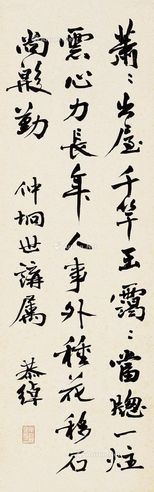 蕭〻出屋千竿玉靄〻當牕一炷
雲心力長年人事外種花移石
尚殷勤 仲坰世講屬 恭綽